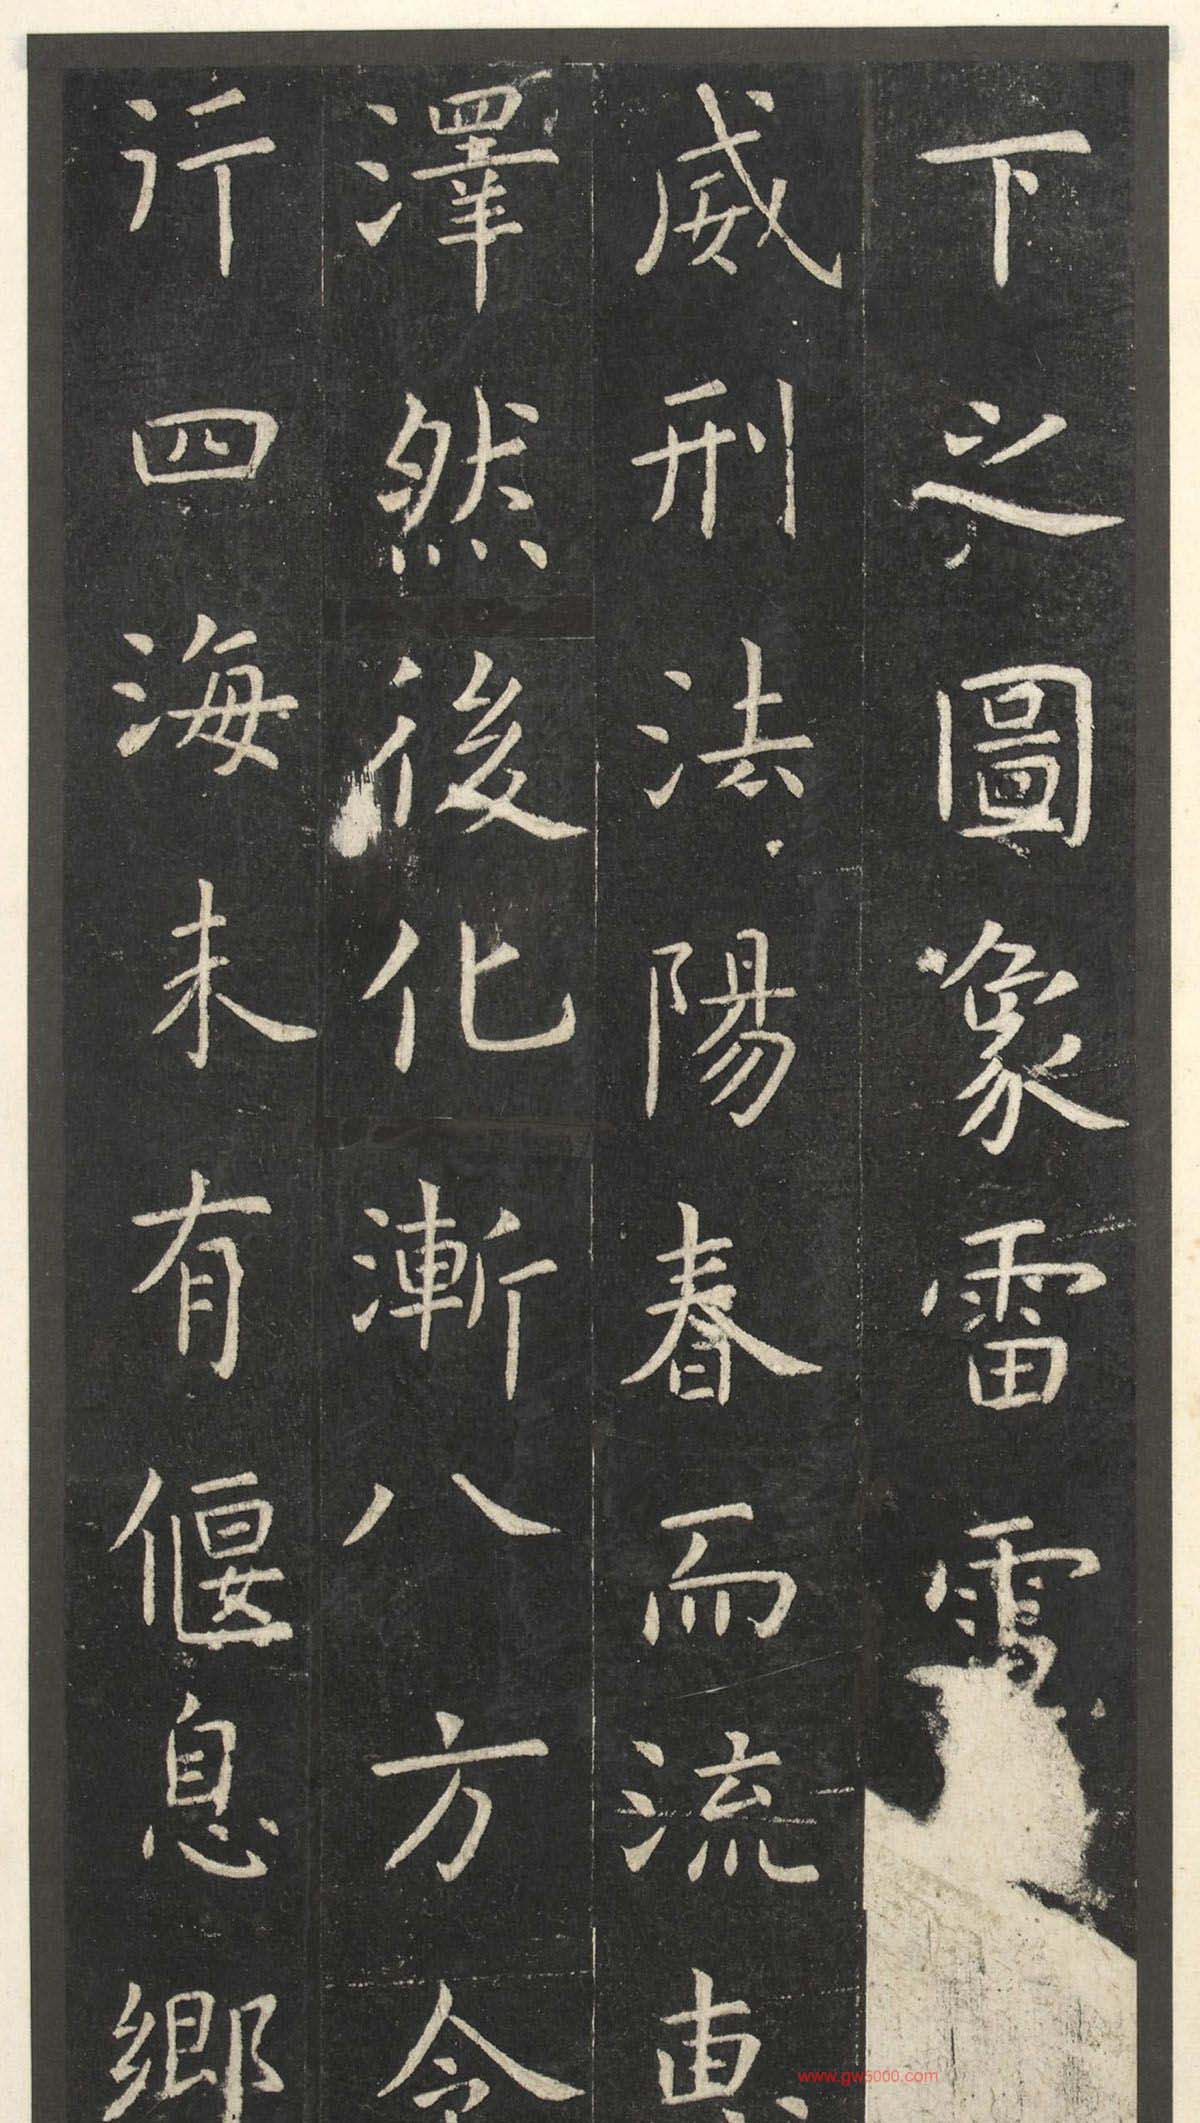 下之圖象雷電
威刑法陽春而流惠
澤然後化漸八方令
行四海未有偃息鄉
www.gw5000.com